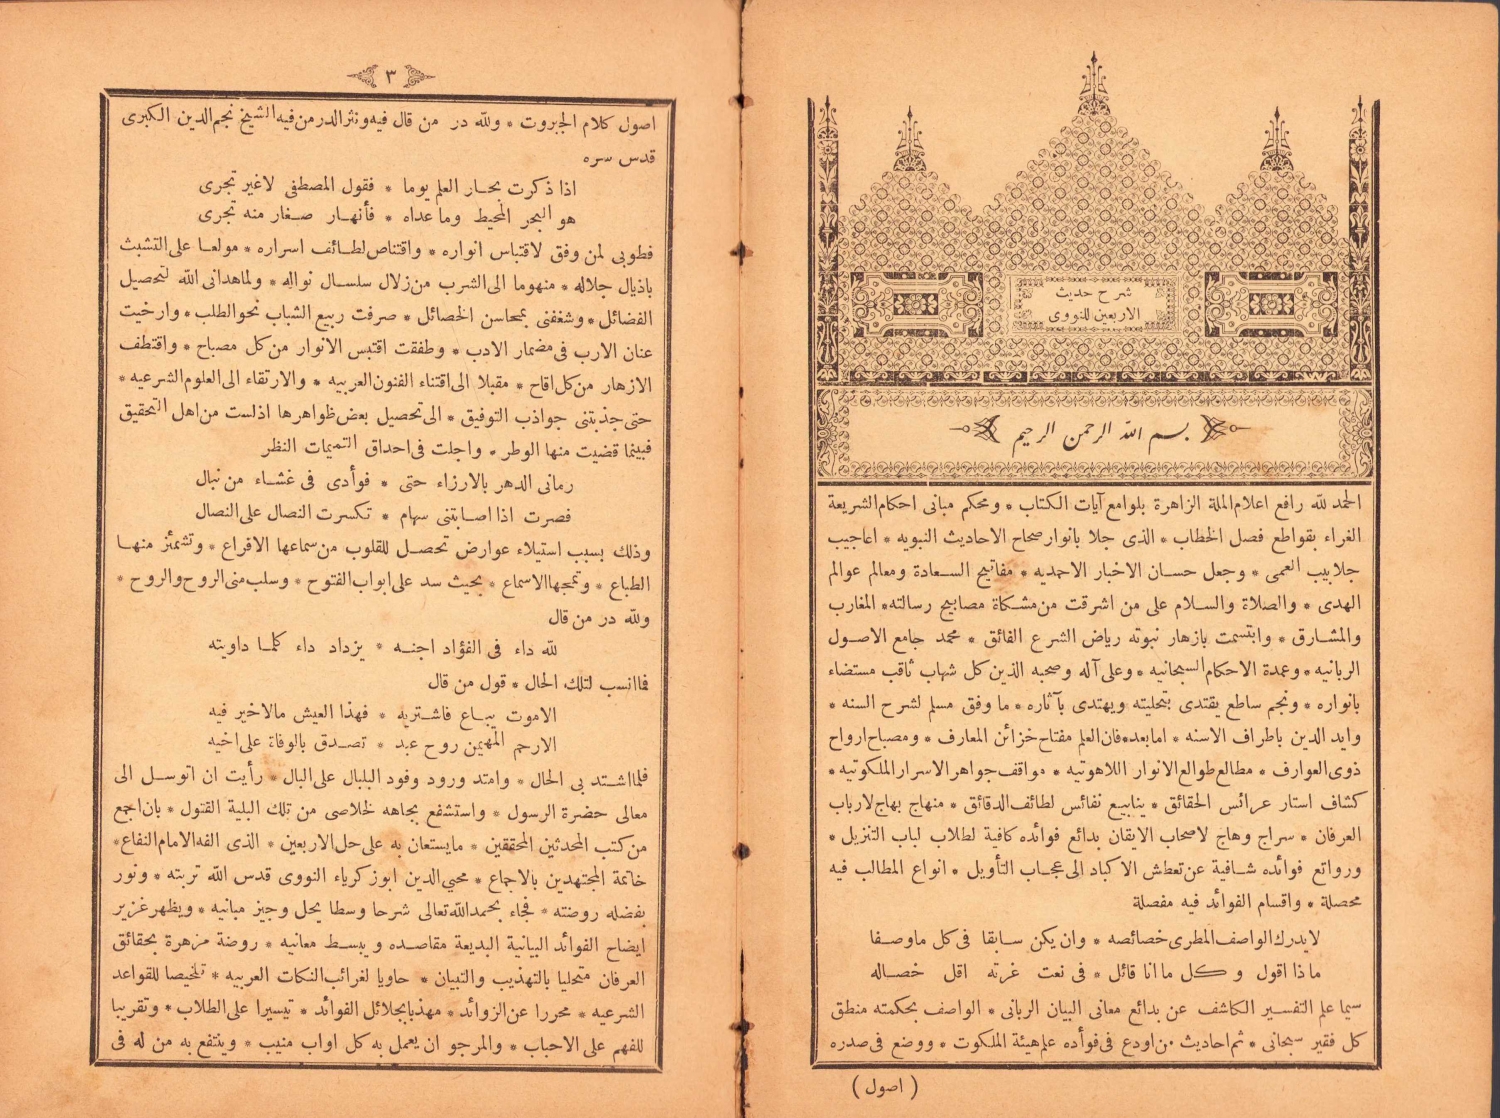 شرح حديث
الاربعين للنووى
بسم الله الرحمن الرحيم
الحمد لله رافع اعلام الملة الزاهرة بلوامع آيات الكتاب * ومحكم مبانى احكام الشريعة
الغراء بقواطع فصل الخطاب * الذى جلا بانوار صحاح الاحاديث النبويه * اعاجيب
جلابيب العمى * وجعل حسان الاخبار الاحمديه * مفاتيح السعادة ومعالم عوالم
الهدى * والصلاة والسلام على من اشرقت من مشكاة مصابيح رسالته * المغارب
والمشارق * وابتسمت بازهار نبوته رياض الشرع الفائق * محمد جامع الاصول
الربانيه * وعمدة الاحكام السبحانيه * وعلى آله وصحبه الذين كل شهاب ثاقب مستضاء
بانواره * ونجم ساطع يقتدى بتحليته ويهتدى بآثاره * ما وفق مسلم لشرح السنه *
وايد الدين باطراف الاسنه * اما بعد * فان العلم مفتاح خزائن المعارف * ومصباح ارواح
ذوى العوارف * مطالع طوالع الانوار اللاهوتيه * مواقف جواهر الاسرار الملكوتيه *
كشاف استار عرائس الحقائق * ينابيع نفائس لطائف الدقائق * منهاج بهاج لارباب
العرفان * سراج وهاج لاصحاب الايقان بدائع فوائده كافية لطلاب لباب التنزيل *
وروائع فوائده شافية عن تعطش الاكباد الى عجاب التأويل * انواع المطالب فيه
محصلة * واقسام الفوائد فيه مفصلة
لايدرك الواصف المطرى خصائصه * وان يكن سابقا فى كل ماوصفا
ماذا اقول وكل ما انا قائل * فى نعت غرته اقل خصاله
سيما علم التفسير الكاشف عن بدائع معانى البيان الربانى * الواصف بحكمته منطق
كل فقير سبحانى * ثم احاديث من اودع فى فوأده علم هيئة الملكوت * ووضع فى صدره
( اصول )
٣
اصول كلام الجبروت * ولله در من قال فيه ونثر الدر من فيه الشيخ نجم الدين الكبرى
قدس سره
اذا ذكرت بحار العلم يوما * فقول المصطفى لاغير تجرى
هو البحر المحيط وما عداه * فأنهار صغار منه تجرى
فطوبى لمن وفق لاقتباس انواره * واقتناص لطائف اسراره * مولعا على التشبث
باذيال جلاله * منهوما الى الشرب من زلال سلسال نواله * ولما هدانى الله لتحصيل
الفضائل * وشغفنى بمحاسن الخصائل * صرفت ربيع الشباب نحو الطلب * وارخيت
عنان الارب فى مضمار الادب * وطفقت اقتبس الانوار من كل مصباح * واقتطف
الازهار من كل اقاح * مقبلا الى اقتناء الفنون العربيه * والارتقاء الى العلوم الشرعيه *
حتى جذبتنى جواذب التوفيق * الى تحصيل بعض ظواهرها اذ لست من اهل التحقيق
فبينما قضيت منها الوطر * واجلت فى احداق التميمات النظر
رمانى الدهر بالارزاء حتى * فوأدى فى غشاء من نبال
فصرت اذا اصابتنى سهام * تكسرت النصال على النصال
وذلك بسبب استيلاء عوارض تحصل للقلوب من سماعها الافراع * وتشمئز منها
الطباع * وتمجها الاسماع * بحيث سد على ابواب الفتوح * وسلب منى الروح والروح *
ولله در من قال
لله داء فى الفؤاد اجنه * يزداد داء كلما داويته
فما انسب لتلك الحال * قول من قال
الاموت يباع فاشتريه * فهذا العيش مالاخير فيه
الارحم المهيمن روح عبد * تصدق بالوفاة على اخيه
فلما اشتد بى الحال * وامتد ورود وفود البلبال على البال * رأيت ان اتوسل الى
معالى حضرة الرسول * واستشفع بجاهه لخلاصى من تلك البلية القتول * بان اجمع
من كتب المحدثين المحققين * مايستعان به على حل الاربعين * الذى الفه الامام النفاع *
خاتمة المجتهدين بالاجماع * محيي الدين ابوزكرياء النووى قدس الله تربته * ونور
بفضله روضته * فجاء بحمد الله تعالى شرحا وسطا يحل وجيز مبانيه * ويظهر غزير
ايضاح الفوائد البيانية البديعة مقاصده ويبسط معانيه * روضة مزهرة بحقائق
العرفان متحليا بالتهذيب والتبيان * حاويا لغرائب النكات العربيه * تلخيصا للقواعد
الشرعيه * محررا عن الزوائد * مهذبا بجلائل الفوائد * تيسيرا على الطلاب * وتقريبا
للفهم على الاحباب * والمرجو ان يعمل به كل اواب منيب * وينتفع به من له فى